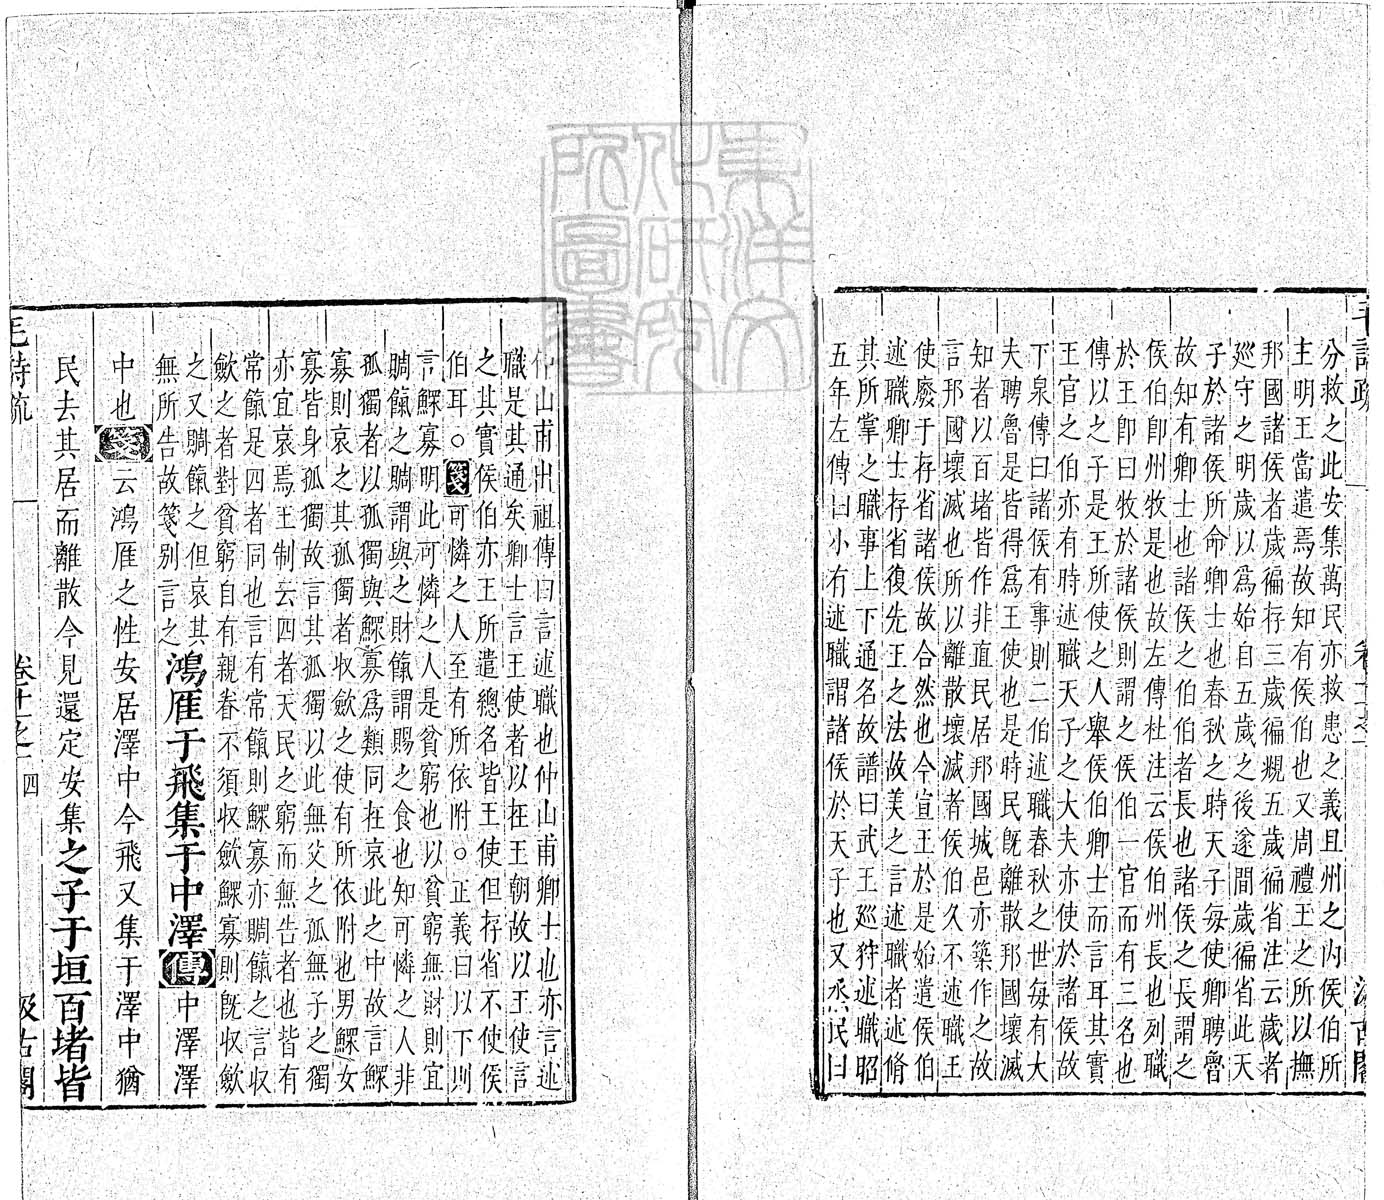 分救之此安集萬民亦救患之義且州之內侯伯所
主明王當遣焉故知有侯伯也又周禮王之所以撫
邦國諸侯者歲徧存三歲徧覜五歲徧省注云歲者
廵守之明歲以爲始自五歲之後遂間歲徧省此天
子於諸侯所命卿士也春秋之時天子每使卿聘魯
故知有卿士也諸侯之伯伯者長也諸侯之長謂之
侯伯卽州牧是也故左傳杜注云侯伯州長也列職
於王卽曰牧於諸侯則謂之侯伯一官而有三名也
傳以之子是王所使之人舉侯伯卿士而言耳其實
王官之伯亦有時述職天子之大夫亦使於諸侯故
下泉傳曰諸侯有事則二伯述職春秋之世每有大
夫聘魯是皆得爲王使也是時民旣離散邦國壞滅
知者以百堵皆作非直民居邦國城邑亦築作之故
言邦國壞滅也所以離散壞滅者侯伯久不述職王
使廢于存省諸侯故合然也今宣王於是始遣侯伯
述職卿士存省復先王之法故美之言述職者述脩
其所掌之職事上下通名故譜曰武王廵狩述職昭
五年左傳曰小有述職謂諸侯於天子也又烝民曰
仲山甫出祖傳曰言述職也仲山甫卿士也亦言述
職是其通矣卿士言王使者以在王朝故以王使言
之其實侯伯亦王所遣總名皆王使但存省不使侯
伯耳○箋可憐之人至有所依附○正義曰以下則
言鰥寡明此可憐之人是貧窮也以貧窮無財則宜
賙餼之賙謂與之財餼謂賜之食也知可憐之人非
孤獨者以孤獨與鰥寡爲類同在哀此之中故言鰥
寡則哀之其孤獨者收歛之使有所依附也男鰥女
寡皆身孤獨故言其孤獨以此無父之孤無子之獨
亦宜哀焉王制云四者天民之窮而無告者也皆有
常餼是四者同也言有常餼則鰥寡亦賙餼之言收
歛之者對貧窮自有親眷不須收歛鰥寡則旣收歛
之又賙餼之但哀其
無所告故箋别言之鴻鴈于飛集于中澤傳中澤澤
中也箋云鴻鴈之性安居澤中今飛又集于澤中猶
民去其居而離散今見還定安集之子于垣百堵皆
毛詩疏 卷十一之一 四 汲古閣